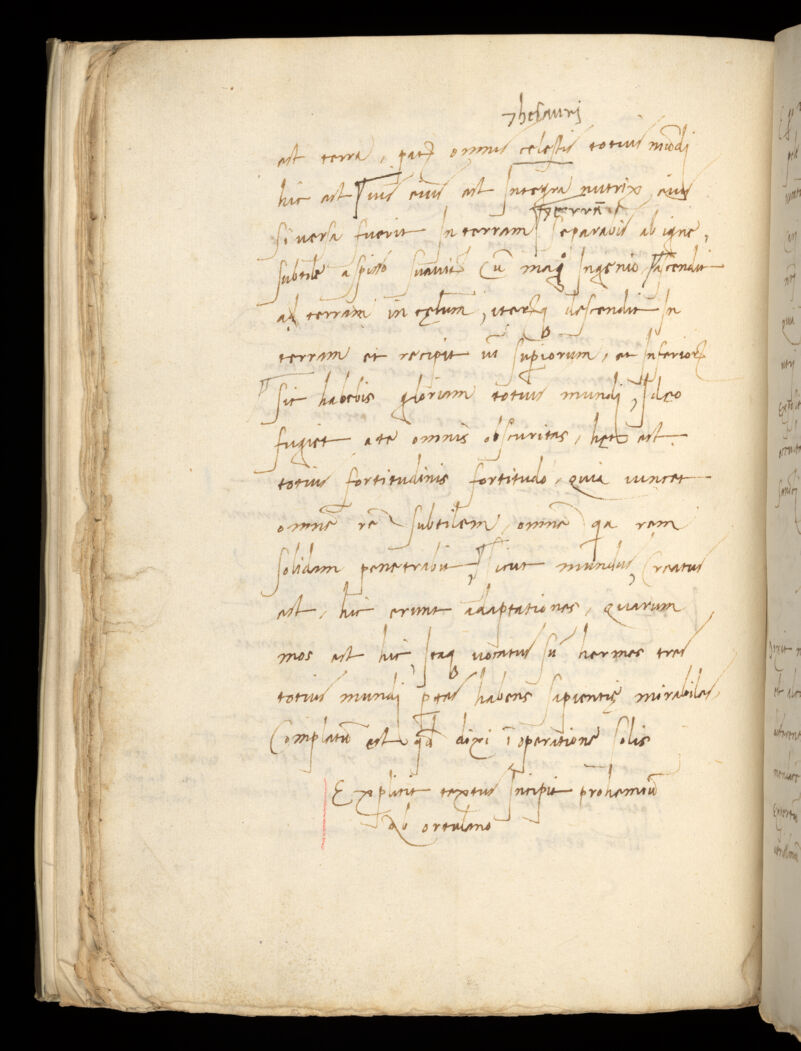 Thesauri
est terra, pater omnis celestis totius mūdi
hic est, vis eius est Integra nutrix eius
si versa fuerit In terram Separabis ab igne,
terrā
subtile a spisso suaviter Cū mag° Ingenio, Ascendit
a terram in cęlum, iterūq descendit In
terram et recipit vī superiorum, et Inferior
Sic habebis gloriam totius mundi, Ideo
fugiet a te omnis obscuritas, hęc est
totius fortitudinis fortitudo, quia vincet
omnē rē subtilem, omnē q rem
solidam penetrabit, Sicut mundus, Creatus
est, hic erunt adaptationes, quarum
mos est hic, Itaq vocatus sū hermes tres
totius mundi ptes habens sapientię mirabiles
Complatū est qd dixi ī operatione solis
Explicit textus Incipit prohemiū
ab ortulano